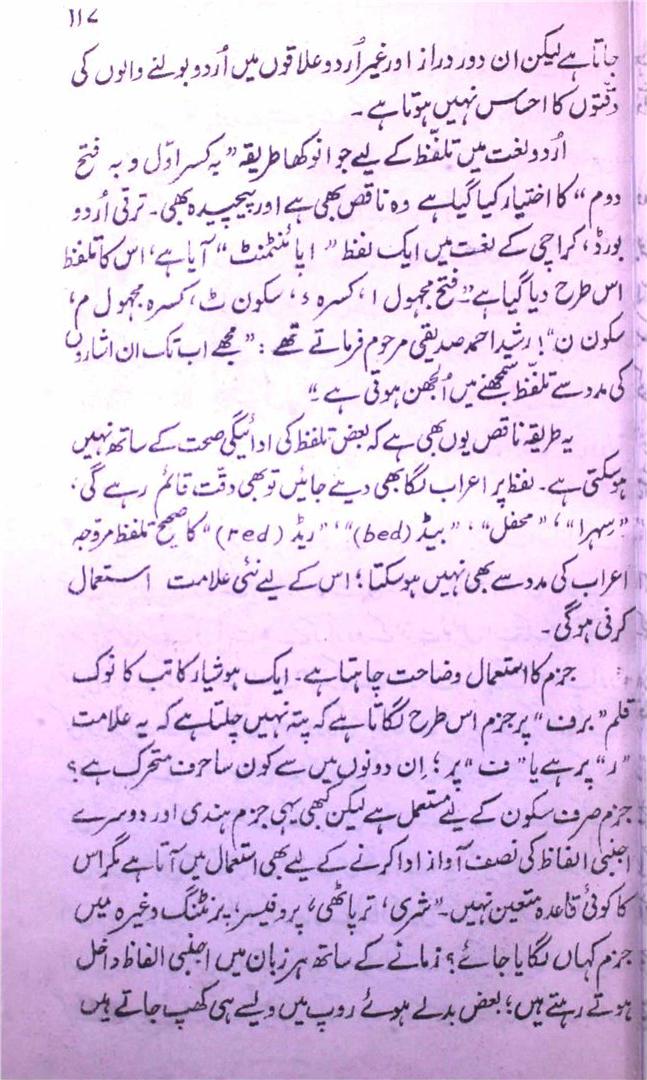 117
جاتا ہے لیکن ان دور دراز اور غیر اُردو علاقوں میں اُردو بولنے والوں کی
دقتوں کا احساس نہیں ہوتا ہے ۔
اُردو لغت میں تلفّظ کے لیے جو انوکھا طریقہ ”بہ کسر اوّل و بہ فتح
دوم“ کا اختیار کیا گیا ہے وہ ناقص بھی ہے اور پیچیدہ بھی ۔ ترقی اُردو
بورڈ، کراچی کے لغت میں ایک لفظ ”اپائنٹمنٹ“ آیا ہے، اس کا تلفظ
اس طرح دیا گیا ہے ”فتح مجہول ا، کسرہ ء، سکون ٹ، کسرہ مجہول م،
سکون ن“! رشید احمد صدیقی مرحوم فرماتے تھے : ”مجھے اب تک ان اشاروں
کی مدد سے تلفّظ سمجھنے میں اُلجھن ہوتی ہے ۔“
یہ طریقہ ناقص یوں بھی ہے کہ بعض تلفظ کی ادائیگی صحت کے ساتھ نہیں
ہوسکتی ہے ۔ لفظ پر اعراب لگا بھی دیئے جائیں تو بھی دقّت قائم رہے گی،
”سہرا“، ”محفل“، ”بیڈ (bed)“، ”ریڈ (red)“ کا صحیح تلفظ مروّجہ
اعراب کی مدد سے بھی نہیں ہوسکتا؛ اس کے لیے نئی علامت استعمال
کرنی ہوگی ۔
جزم کا استعمال وضاحت چاہتا ہے ۔ ایک ہوشیار کاتب کا نوک
قلم ”برف“ پر جزم اس طرح لگاتا ہے کہ پتہ نہیں چلتا ہے کہ یہ علامت
”ر“ پر ہے یا ”ف“ پر؛ اِن دونوں میں سے کون سا حرف متحرک ہے؟
جزم صرف سکون کے لیے مستعمل ہے لیکن کبھی یہی جزم ہندی اور دوسرے
اجنبی الفاظ کی نصف آواز ادا کرنے کے لیے بھی استعمال میں آتا ہے مگر اس
کا کوئی قاعدہ متعین نہیں ۔ ”شری، ترپاٹھی، پروفیسر، پرنٹنگ وغیرہ میں
جزم کہاں لگایا جائے؟ زمانے کے ساتھ ہر زبان میں اجنبی الفاظ داخل
ہوتے رہتے ہیں؛ بعض بدلے ہوئے روپ میں ویسے ہی کھپ جاتے ہیں